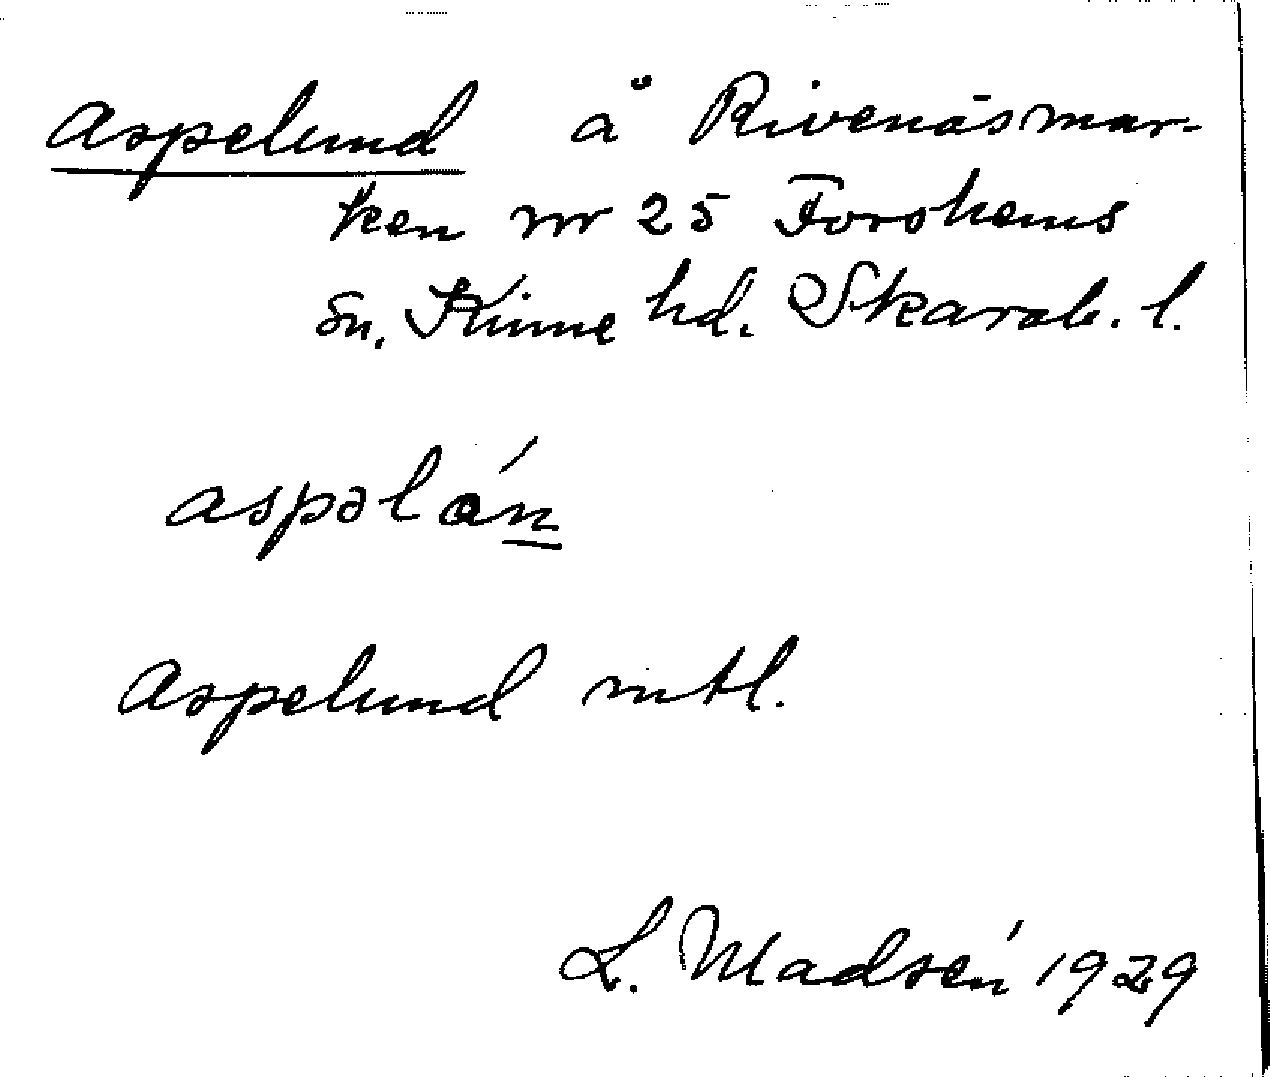 Aspelund å Rivenäsmar-
ken nr 25 Forshems
sn. Kinne hd. Skarab. l.
aspəlán
Aspelund mtl.
L. Madsén 1929